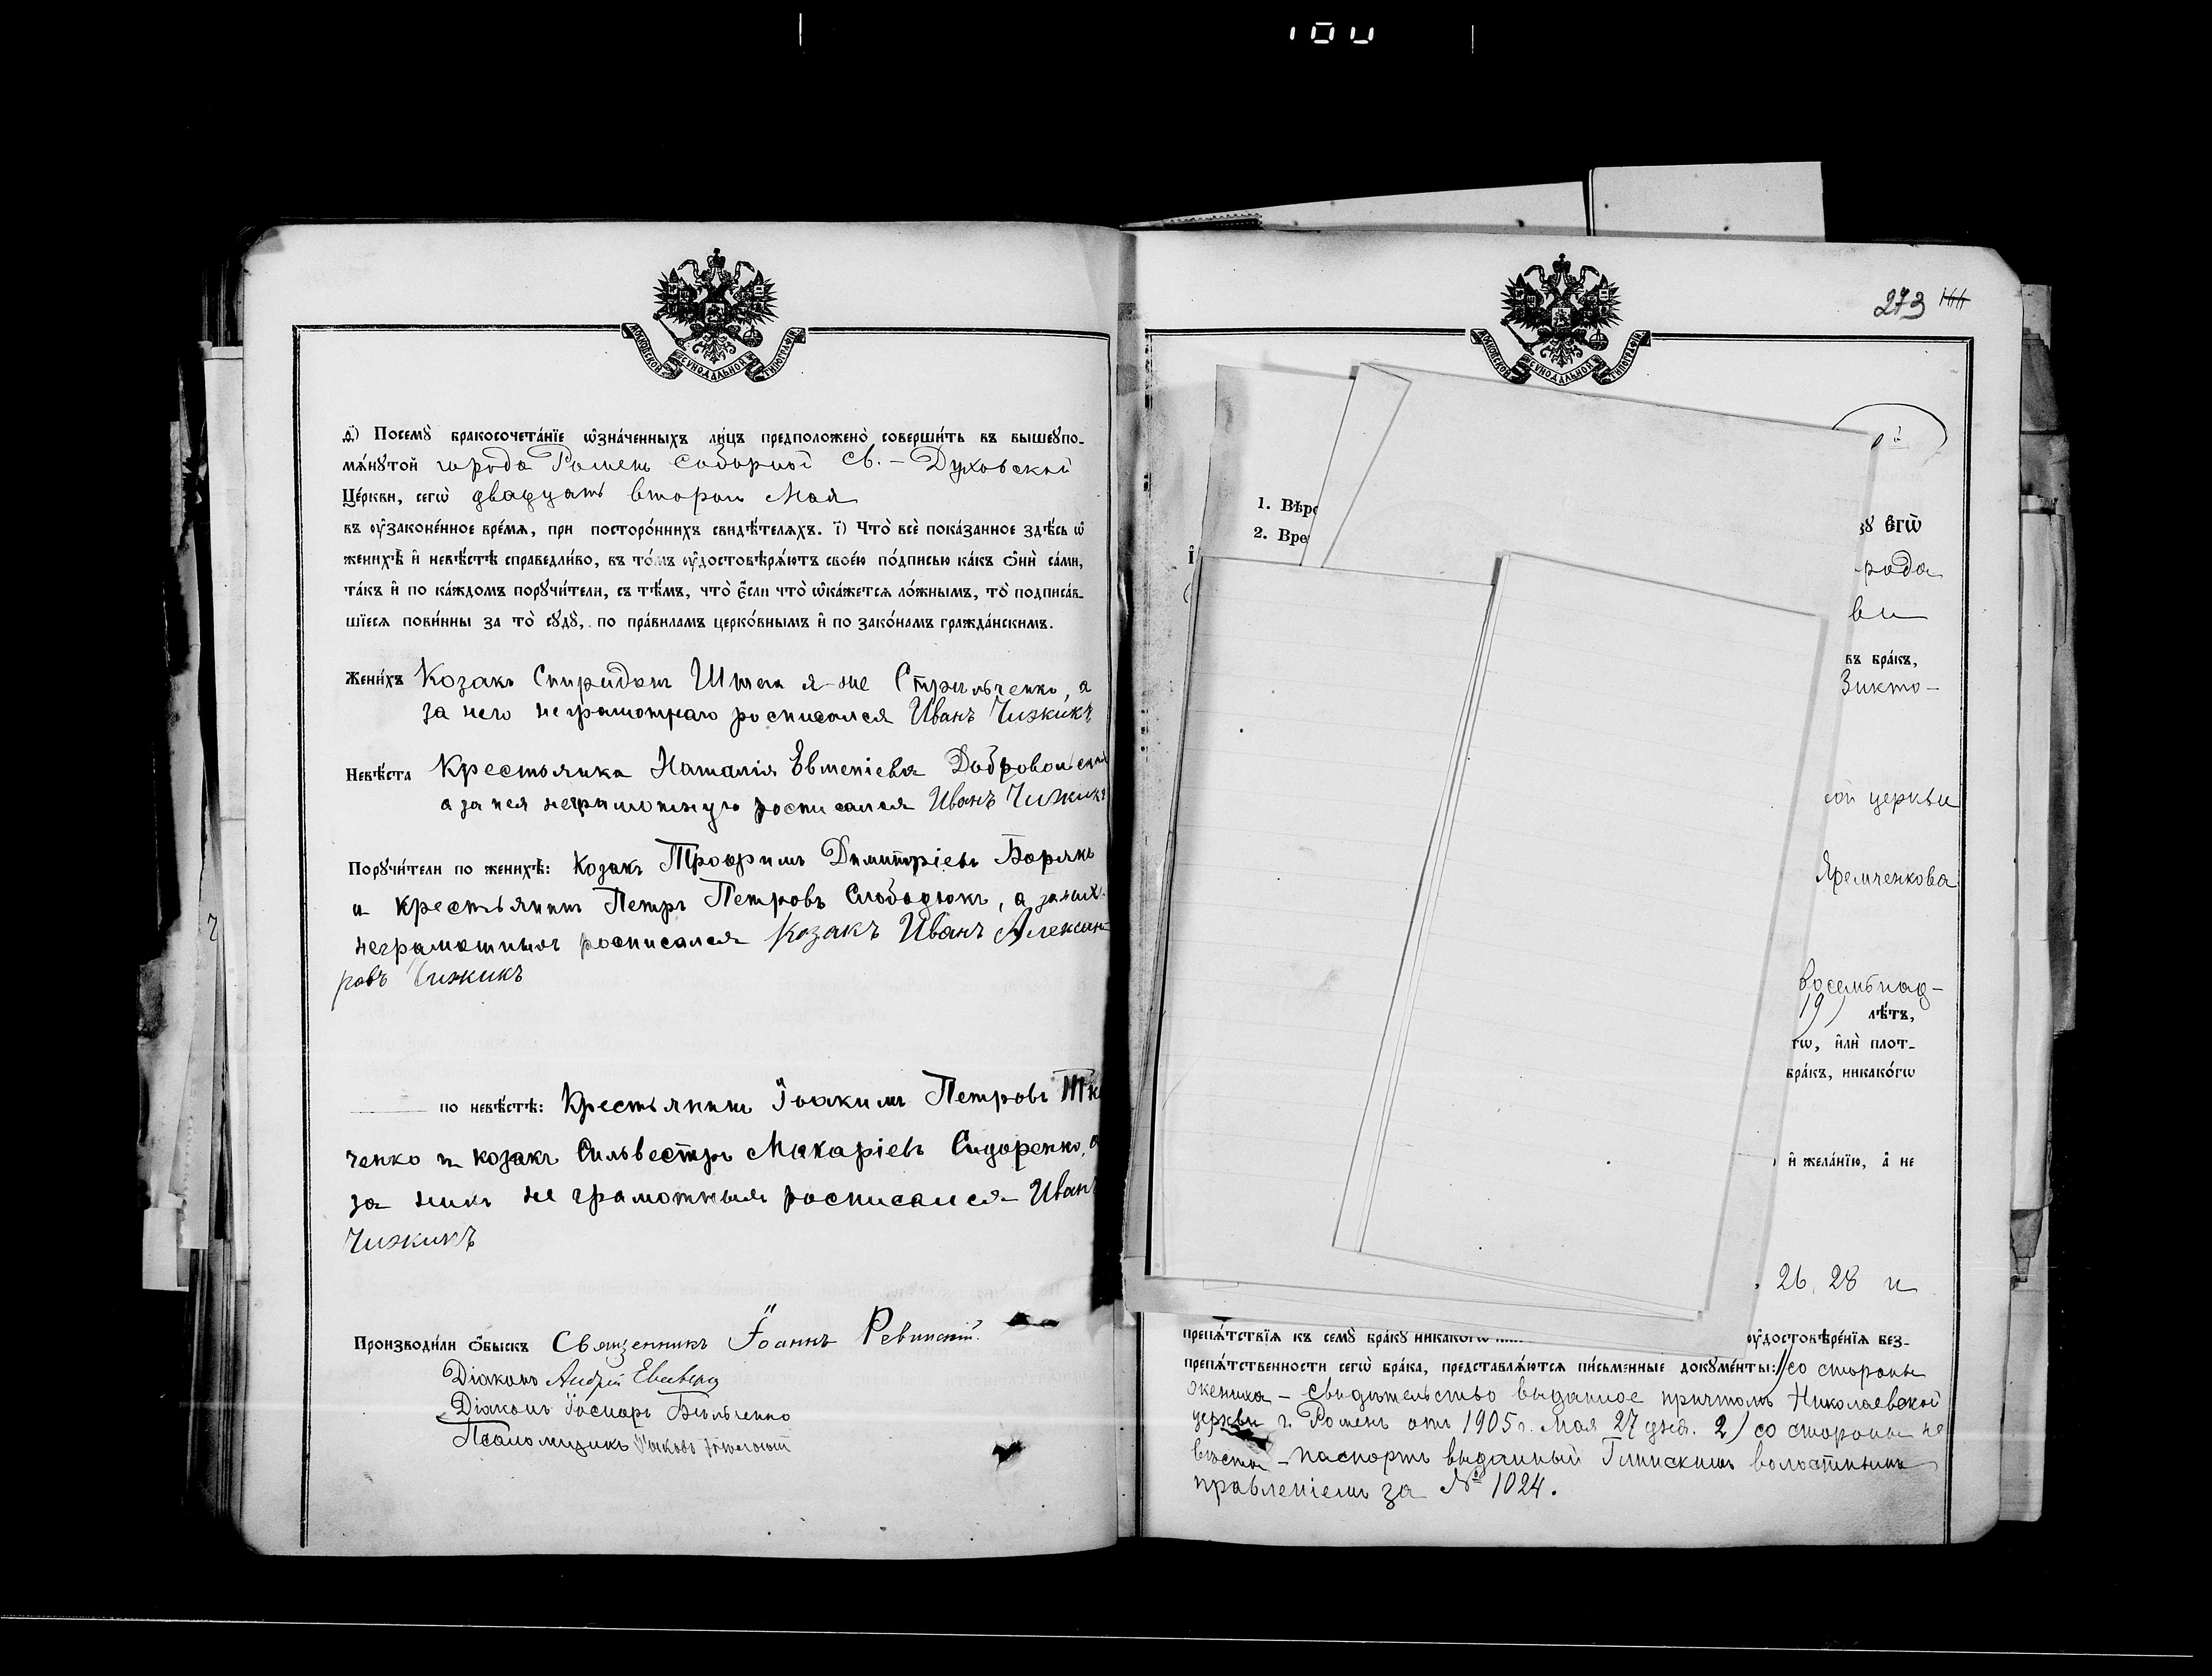 МОСКОВСКОЙ СѴНОДАЛЬНОЙ ТИПОГРАФІИ
ѳ҃) Посемꙋ̀ бракосочета́нїе ѡ҆зна́ченныхъ ли́цъ предположено̀ соверши́ть въ вышеꙋпо-
мѧ́нꙋтой города Ромен соборной Св.-Духовской
Це́ркви, сегѡ̀ двадцать второго Мая
въ ᲂу҆зако́не́нное вре́мѧ, при посторо́ннихъ свидѣ́телѧхъ. і҃) Что̀ всѐ пока́занное здѣ́сь ѡ҆
женихѣ̀ и҆ невѣ́стѣ справедли́во, въ то́мъ ᲂу҆достовѣрѧ́ютъ своє́ю по́дписью ка́къ ѻ҆нѝ са́ми,
та́къ и҆ по ка́ждомъ порꙋчи́тели, съ тѣ́мъ, что̀ є҆́сли что̀ ѡ҆ка́жетсѧ ло́жнымъ, то̀ подписа́в-
шїесѧ пови́нны за то̀ сꙋдꙋ̀, по пра́виламъ церко́внымъ и҆ по зако́намъ гражда́нскимъ.
Жени́хъ Козакъ Спиридон Стрильченко, а
за него неграмотнаго росписался Иванъ Чижикъ
Невѣ́ста Крестьянка Наталія Евменіева
а за нея неграмотную росписался Иванъ Чижикъ
Порꙋчи́тели по женихѣ̀: Козакъ Трофимъ Димитріевъ Борякъ
и крестьянинъ Петръ Петровъ Слободюкъ, а за них
неграмотныхъ росписался Козакъ Иванъ Алексан-
ровъ Чижикъ
по невѣ́стѣ: Крестьянинъ Іоакимъ Петровъ Тк
ченко и козакъ Сильвестръ Макаріевъ Сидоренко, а
за нихъ не грамотныхъ росписался Иванъ
Чижикъ
Производи́ли ѻ҆́быскъ Священникъ Іоаннъ Ревинскій
Діаконъ Андрей
Діаконъ
Псаломщикъ
273 144
МОСКОВСКОЙ СѴНОДАЛЬНОЙ ТИПОГРАФІИ
1. Вѣро
2. Вре
є҆гѡ̀
рода
ви
въ бра́къ,
Викто-
ой церкви
Яремченкова
восемьнад-
19) лѣ́тъ,
гѡ, и҆лѝ плот-
бра́къ, никако́гѡ
и҆ жела́нїю, а҆ не
26, 28 и
препѧ́тствїѧ къ семꙋ̀ бра́кꙋ никако́гѡ ᲂу҆достовѣре́нїѧ без-
препѧ́тственности сегѡ̀ бра́ка, представлѧ́ютсѧ пи́сьменные докꙋме́нты: 1) со стороны
жениха - свидѣтельство выданное причтомъ Николаевской
церкви г. Роменъ отъ 1905 г. Мая 27 дня. 2) со стороны не
вѣсты - паспортъ выданный Глинскимъ волостнымъ
правленіемъ за № 1024.